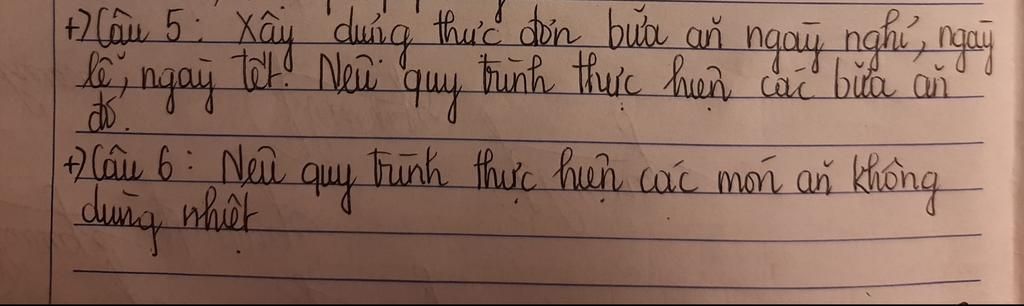 +) Câu 5: Xây dựng thực đơn bữa ăn ngày nghỉ, ngày
lễ, ngày tết. Nêu quy trình thực hiện các bữa ăn
đó.
+) Câu 6: Nêu quy trình thực hiện các món ăn không
dùng nhiệt